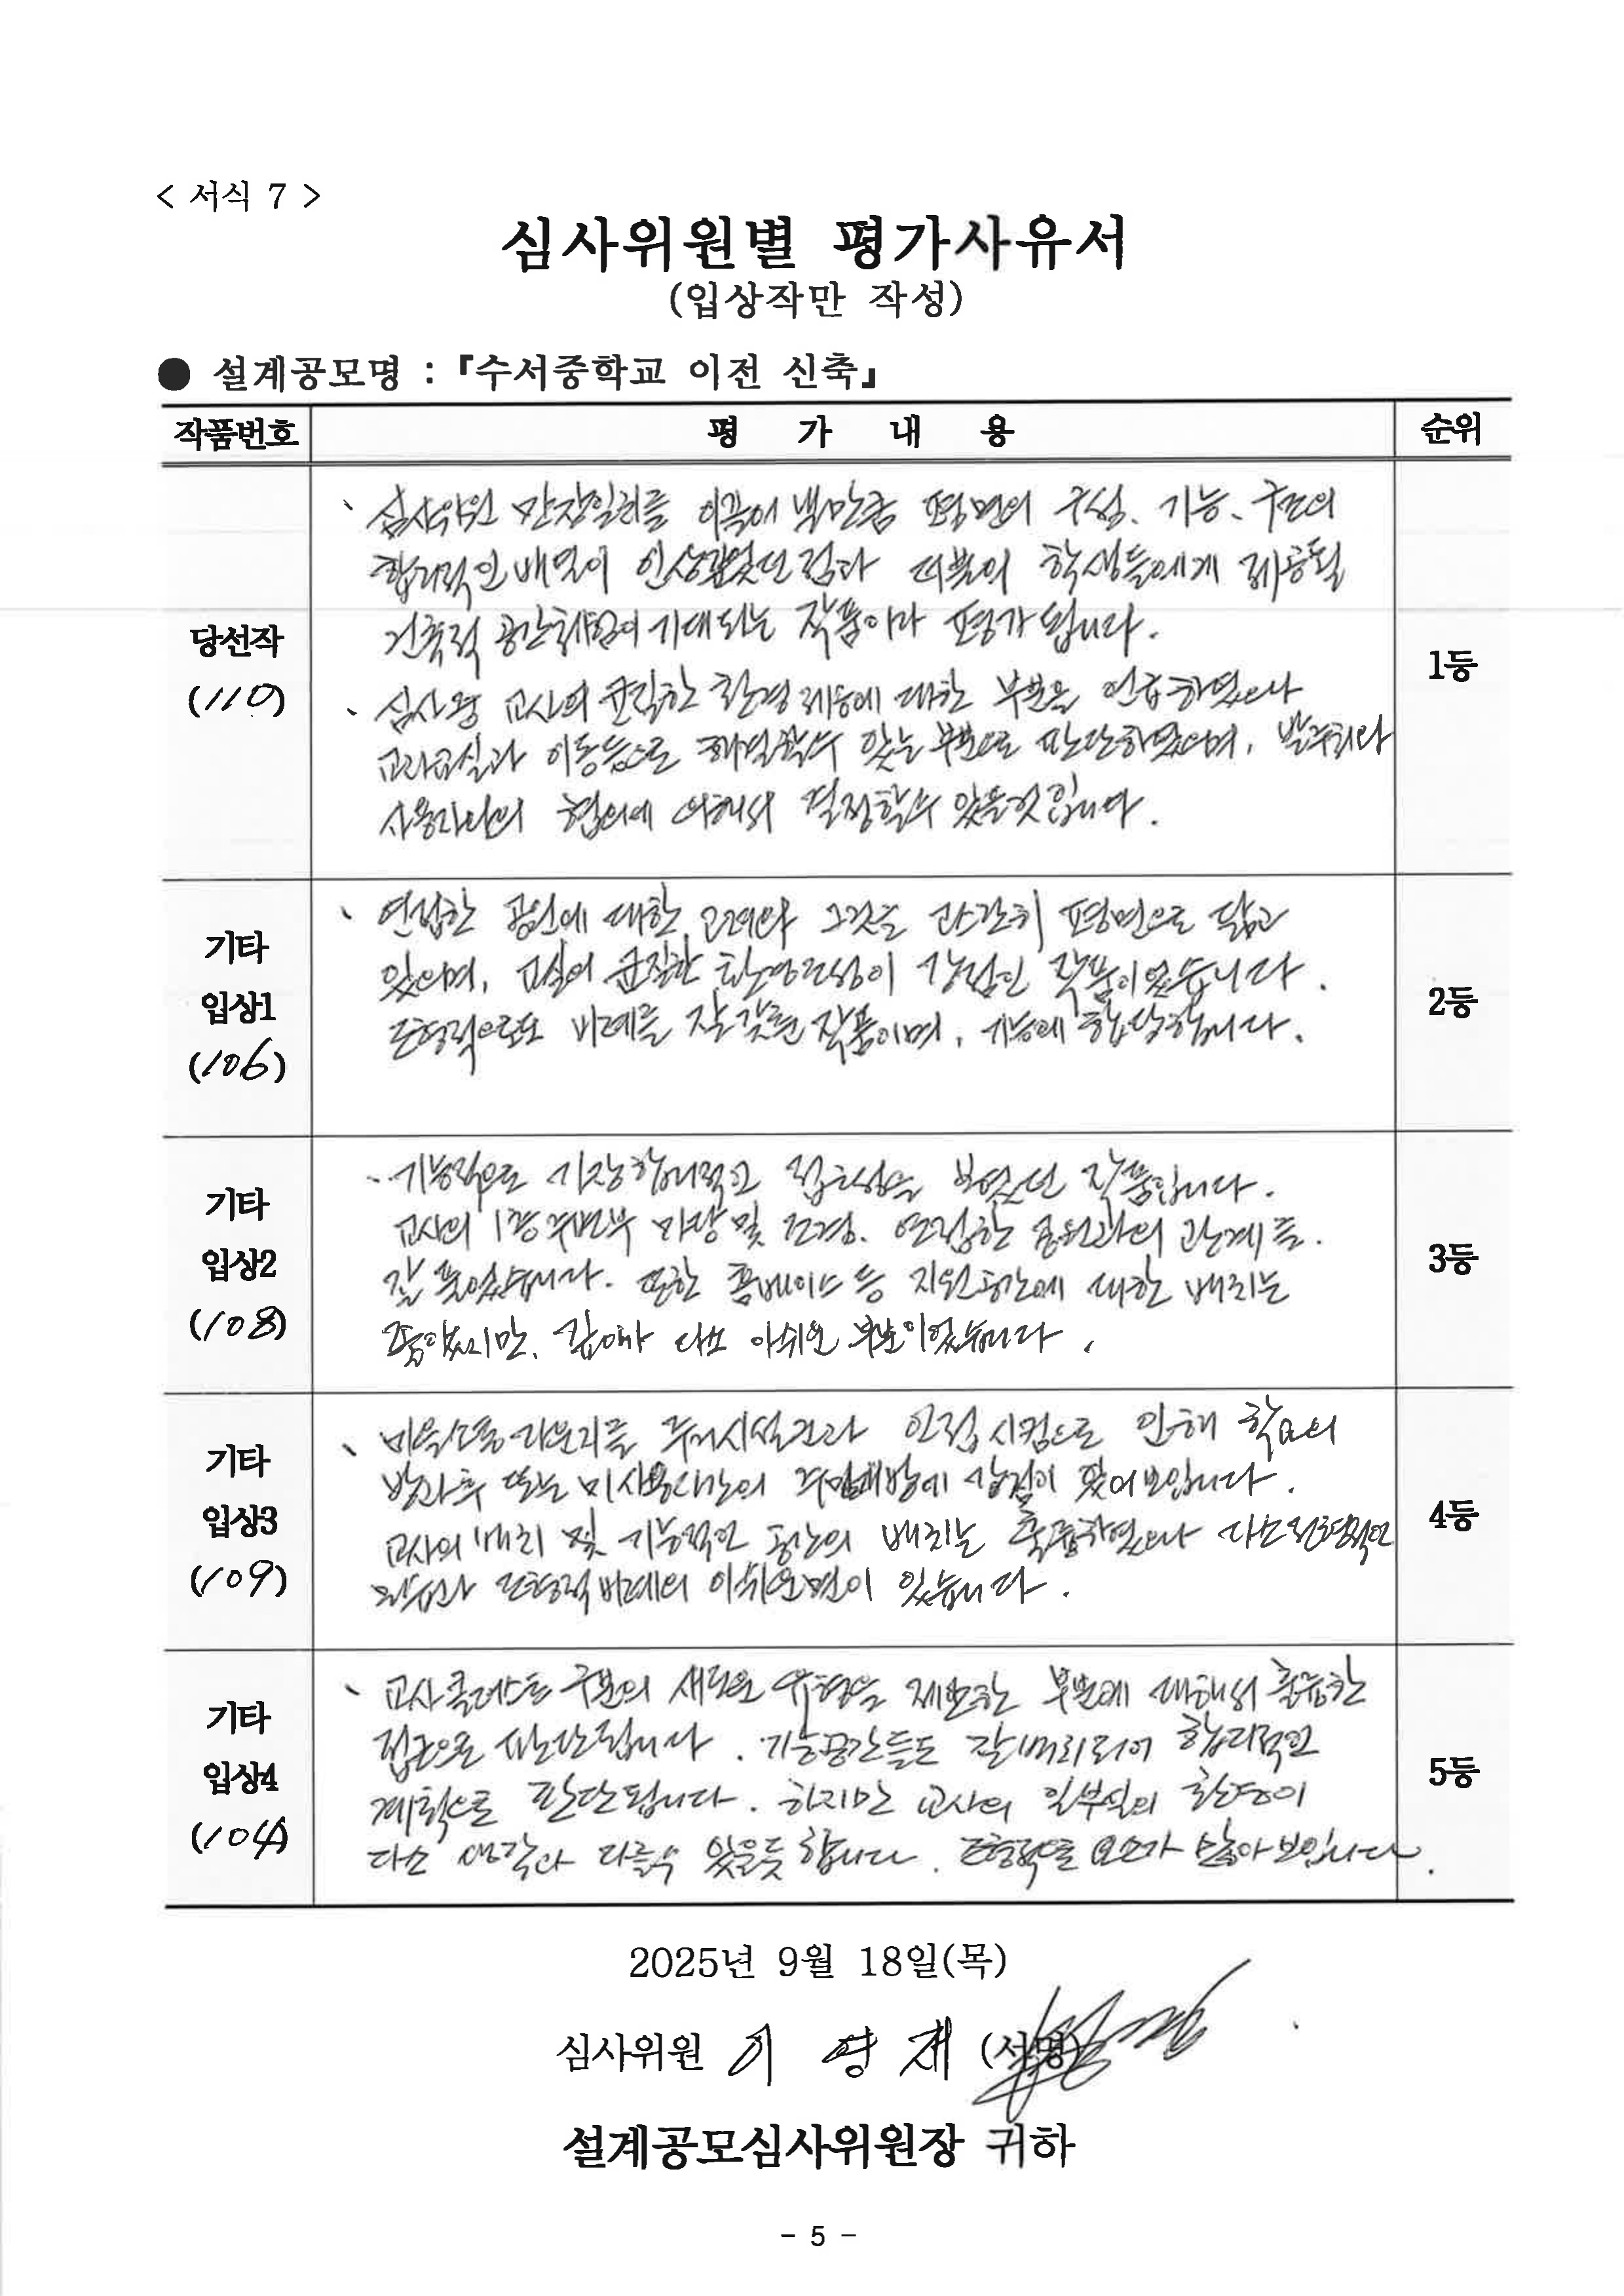 < 서식 7 >
심사위원별 평가사유서
(입상작만 작성)
● 설계공모명 : 『수서중학교 이전 신축』
작품번호 평 가 내 용 순위
당선작
(110)
1등
、심사위원 만장일치를 이끌어 낼만큼 평면의 구성、기능、구조의
합리적인 배열이 인상깊었던 점과 더불어 학생들에게 제공될
건축적 공간체험이 기대되는 작품이라 평가 됩니다.
、심사중 교사의 균질한 환경제공에 대한 부분을 언급하였으나
교과교실과 이동등으로 해결할수 있는 부분으로 판단하였으며, 발주처와
사용자와의 협의에 의해서 결정할수 있을것입니다.
기타
입상1
(106)
2등
、연접한 공원에 대한 고려와 그것을 관찰히 평면으로 담고
있으며, 교실의 균질한 환경조성이 강점인 작품이었습니다.
조형적으로도 비례를 잘 갖춘 작품이며, 기능에 합당합니다.
기타
입상2
(108)
3등
기능적으로 가장 합리적인 접근성을 보였던 작품입니다.
교사의 1층 주변부 마당 및 조경、연접한 공원과의 관계를
잘 풀었습니다. 또한 홈베이스 등 지원공간에 대한 배치는
좋았지만, 다소 아쉬운 부분이었습니다.
기타
입상3
(109)
4등
、비움소통라운지를 주거시설군과 인접시킴으로 인해 학교의
방과후 또는 미사용시간의 주민개방에 강점이 있어보입니다.
교사의 배치 및 기능적인 공간의 배치는 훌륭하였으나 다소 전형적인
조형적 비례의 아쉬운면이 있습니다.
기타
입상4
(104)
5등
、교사 클러스트 구분의 새로운 유형을 제안한 부분에 대해서 훌륭한
접근으로 판단됩니다. 기능공간들도 잘 분리되어 합리적인
계획으로 판단됩니다. 하지만 교사의 일부실의 환경이
다소 생각과 다를수 있을듯 합니다. 조형적으로 요소가 많아 보입니다.
2025년 9월 18일(목)
심사위원 이 영 재 (서명)
설계공모심사위원장 귀하
- 5 -